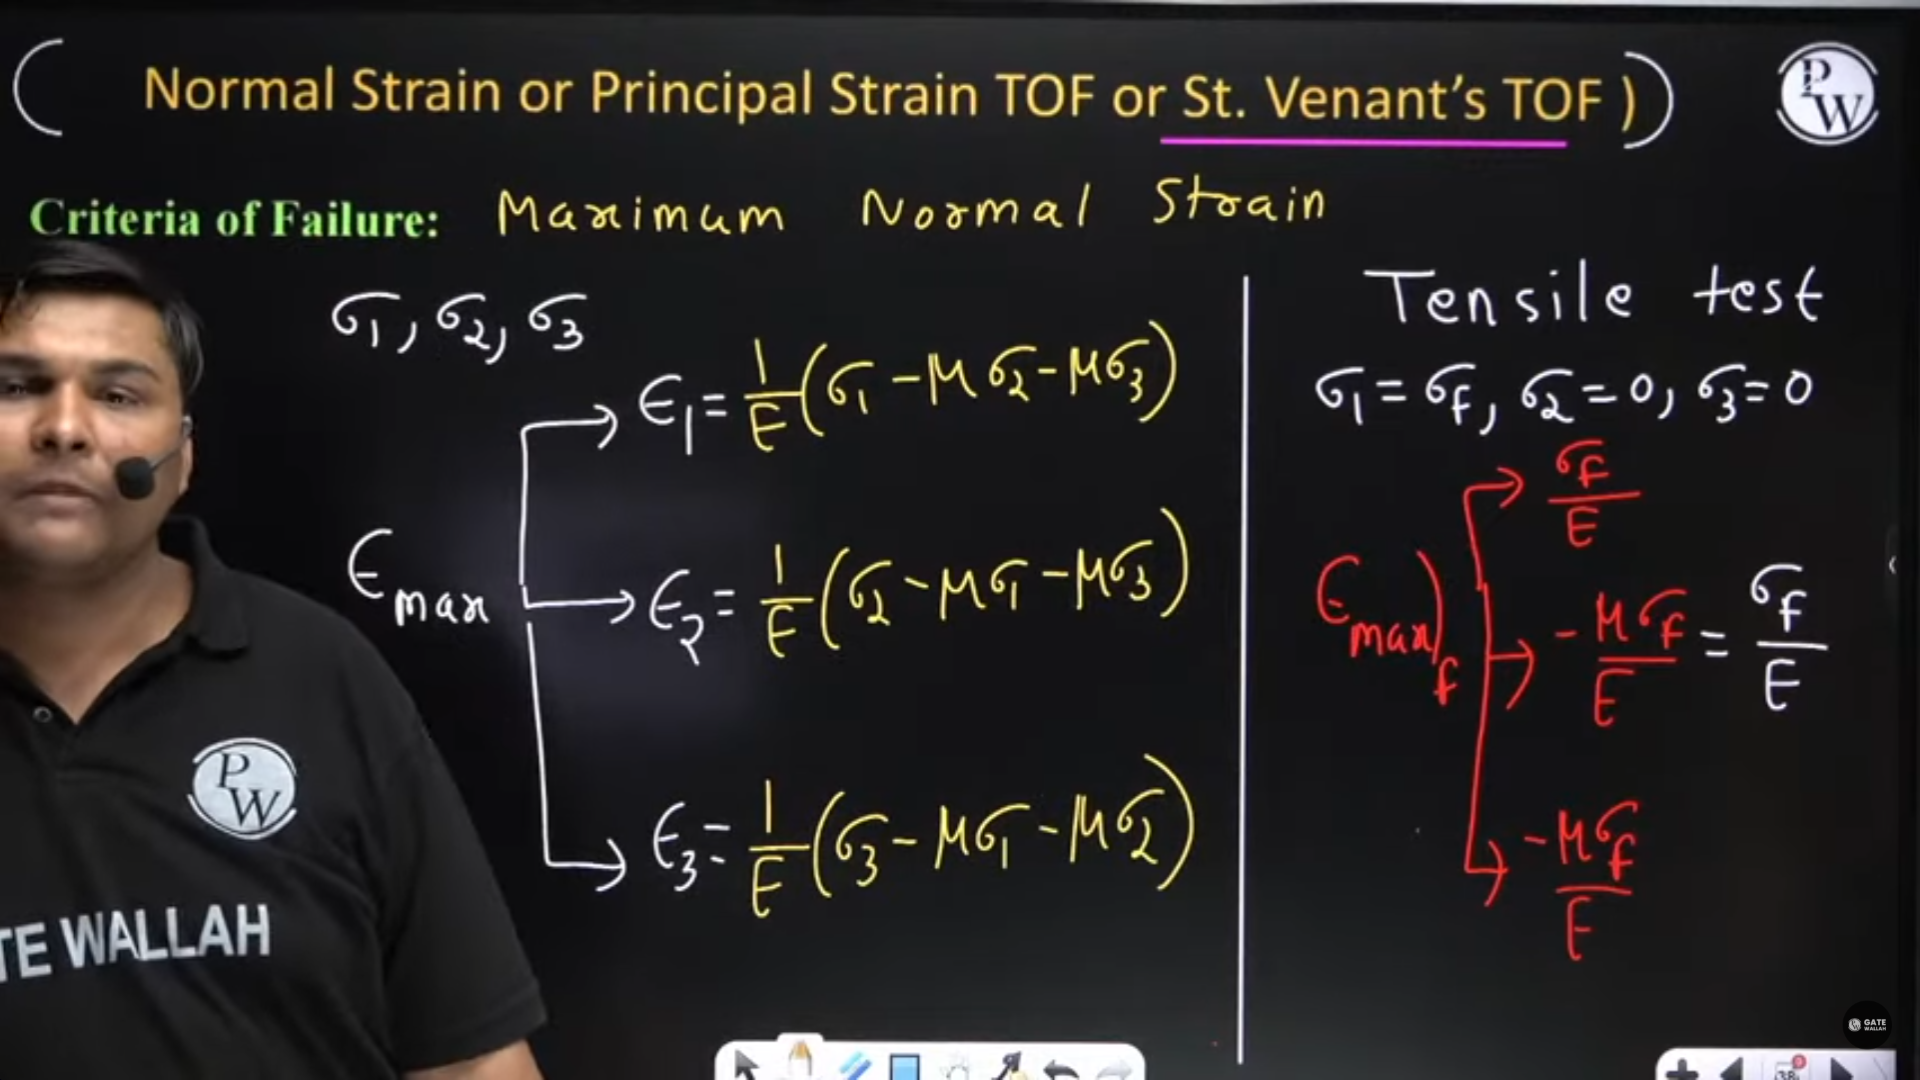 ( Normal Strain or Principal Strain TOF or St. Venant's TOF )
PW
Criteria of Failure: Maximum Normal Strain
σ1, σ2, σ3
ϵmax
ϵ1 = 1/E (σ1 - μσ2 - μσ3)
ϵ2 = 1/E (σ2 - μσ1 - μσ3)
ϵ3 = 1/E (σ3 - μσ1 - μσ2)
Tensile test
σ1 = σf, σ2 = 0, σ3 = 0
ϵmax)f
σf/E
-μσf/E = σf/E
-μσf/E
PW
TE WALLAH
GATE
WALLAH
38